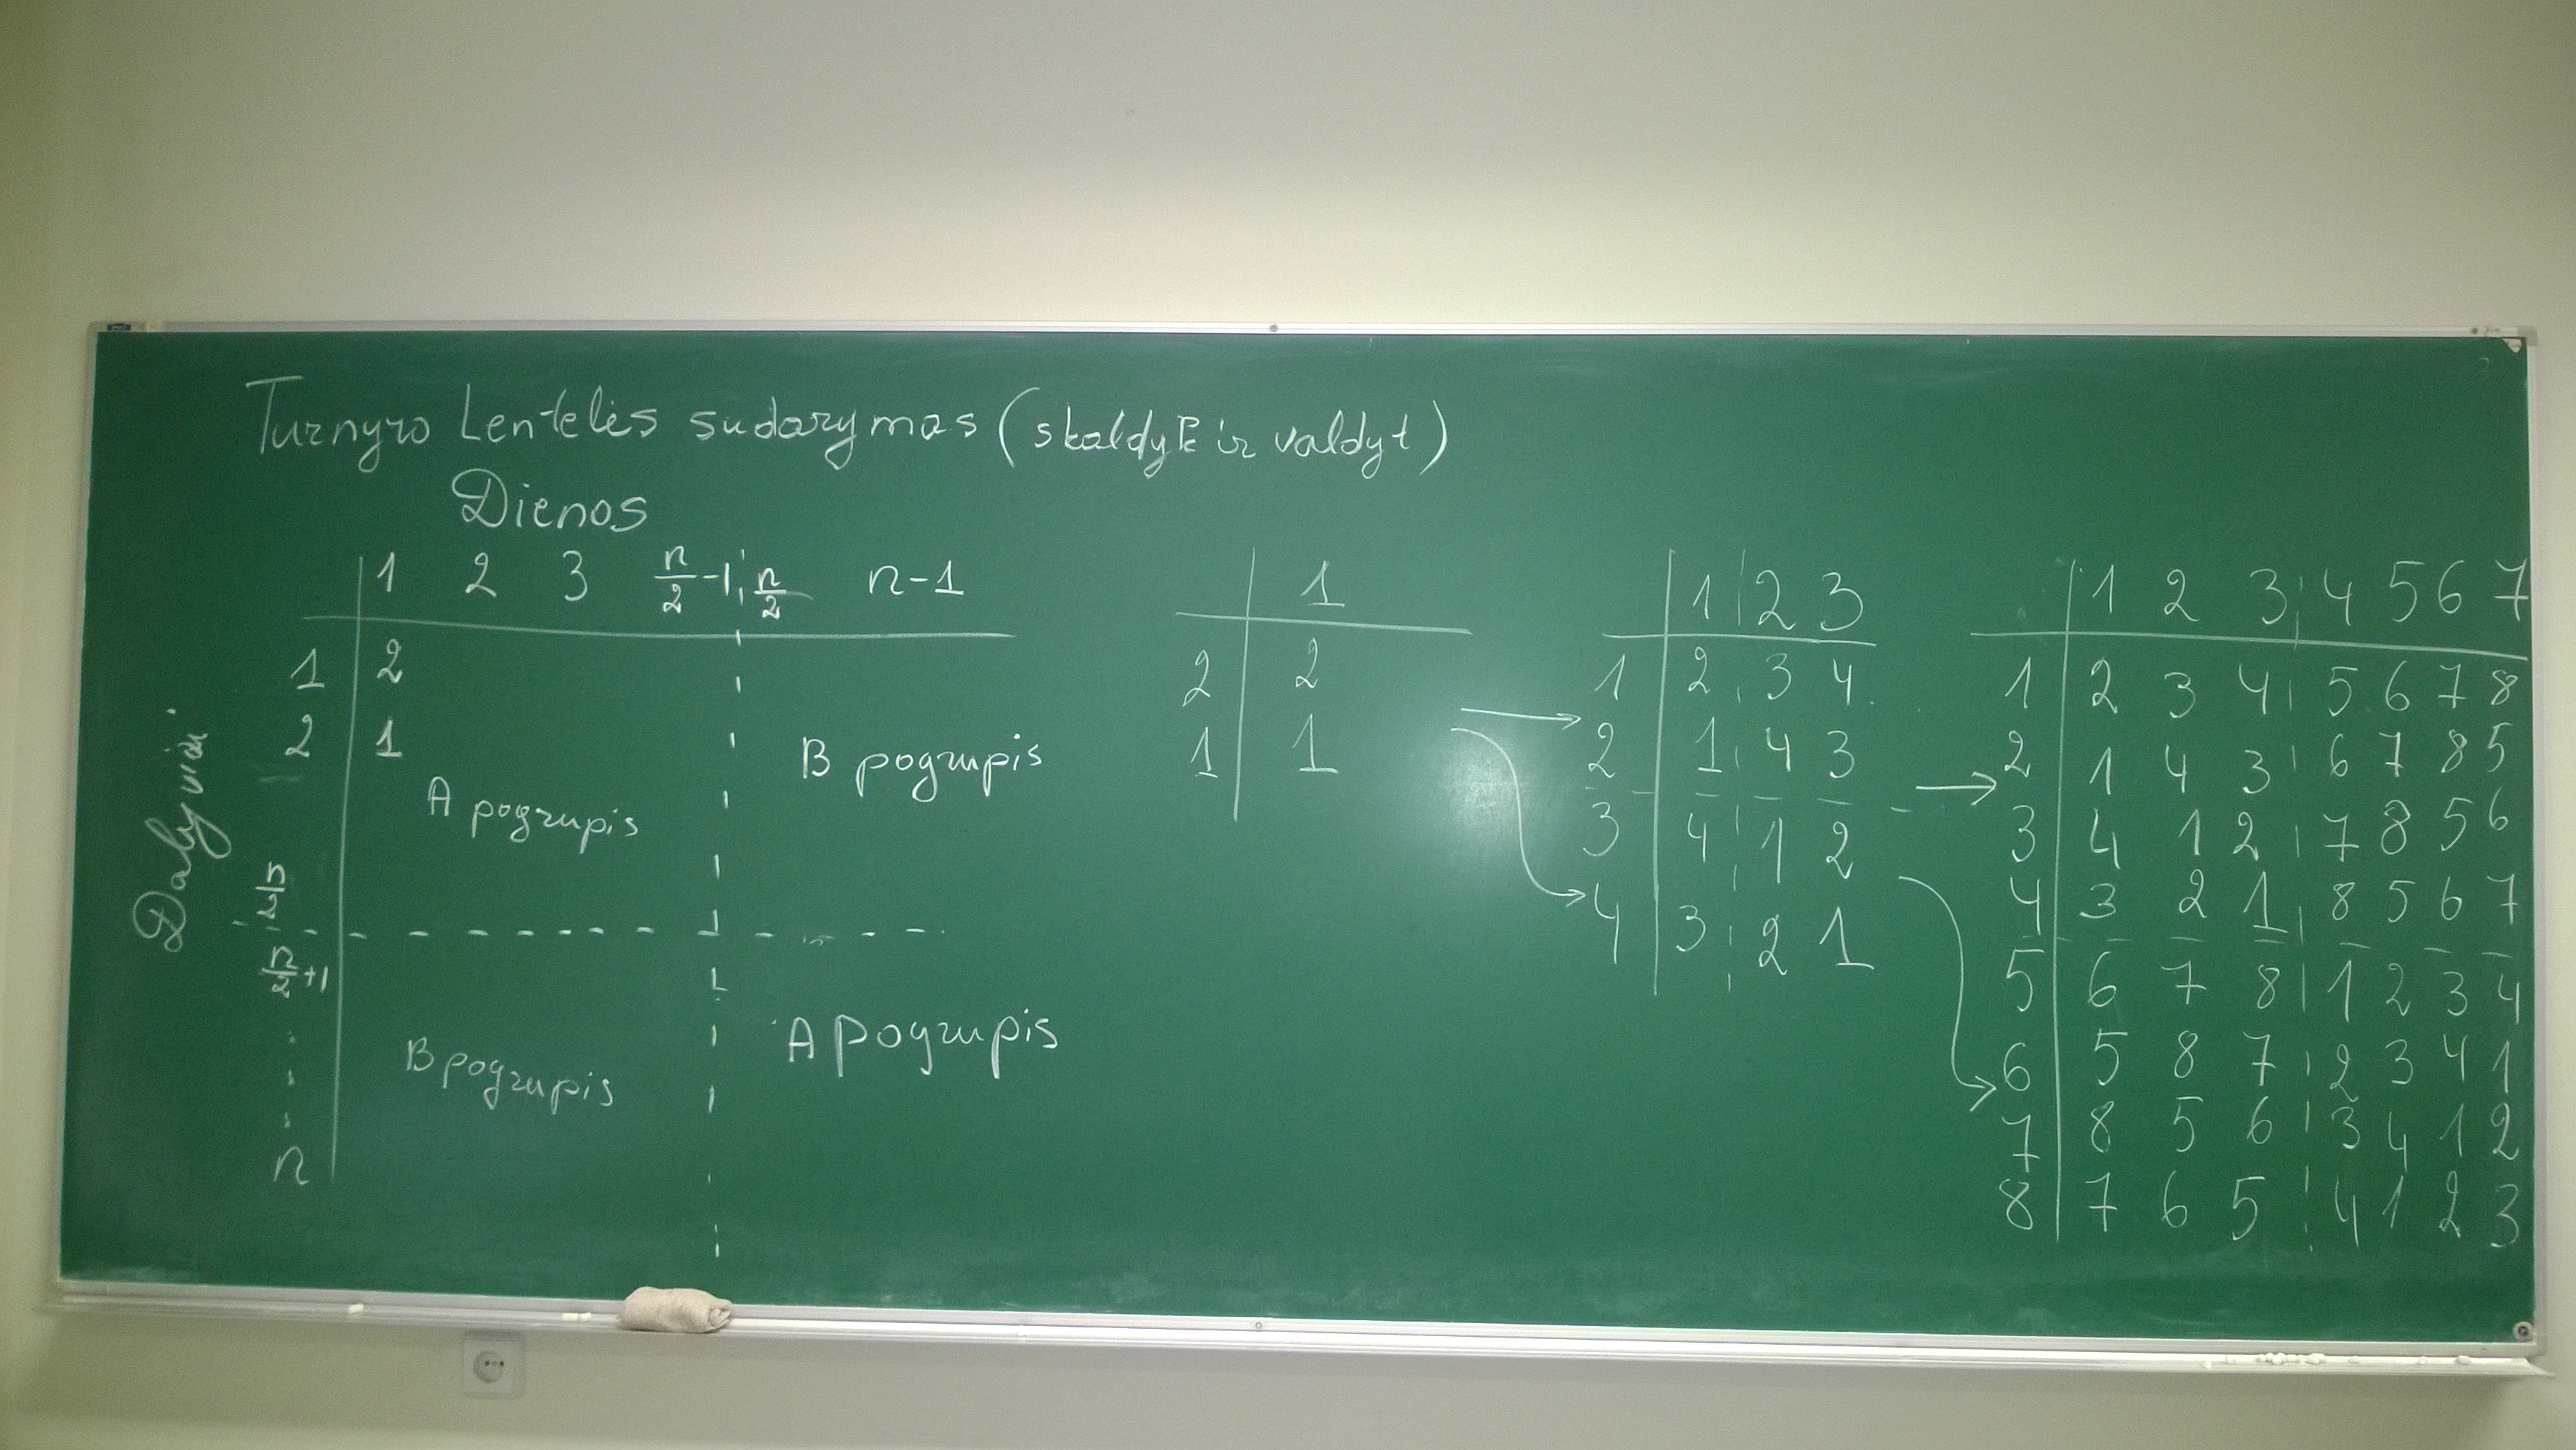 Turnyro Lentelės sudarymas (skaldyk ir valdyt)
Dienos
1 2 3 n/2 -1 n/2 n-1
Dalyviai
1 2
2 1
A pogrupis B pogrupis
n/2
n/2 +1
B pogrupis A pogrupis
n
1
2 2
1 1
1 2 3
1 2 3 4
2 1 4 3
3 4 1 2
4 3 2 1
1 2 3 4 5 6 7
1 2 3 4 5 6 7 8
2 1 4 3 6 7 8 5
3 4 1 2 7 8 5 6
4 3 2 1 8 5 6 7
5 6 7 8 1 2 3 4
6 5 8 7 2 3 4 1
7 8 5 6 3 4 1 2
8 7 6 5 4 1 2 3